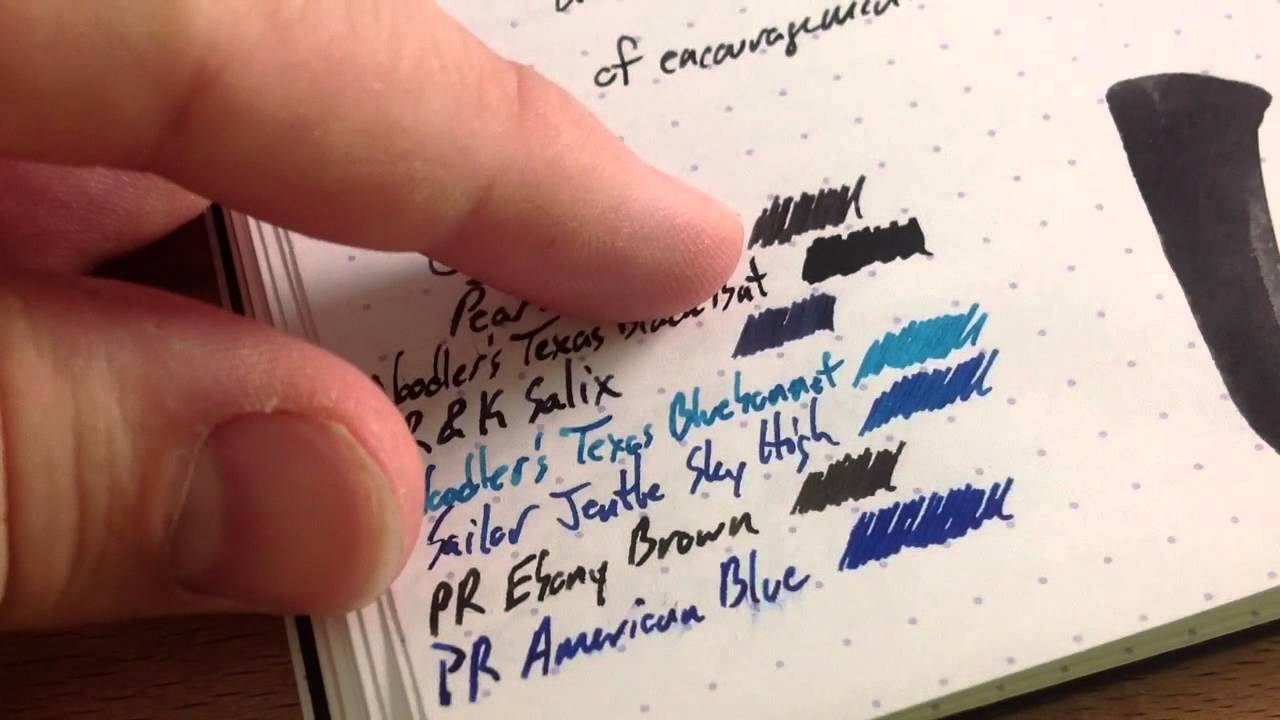 of
Noodler's Texas Bat
R & K Salix
Noodler's Texas Bluebonnet
Sailor Jentle Sky High
PR Ebony Brown
PR American Blue